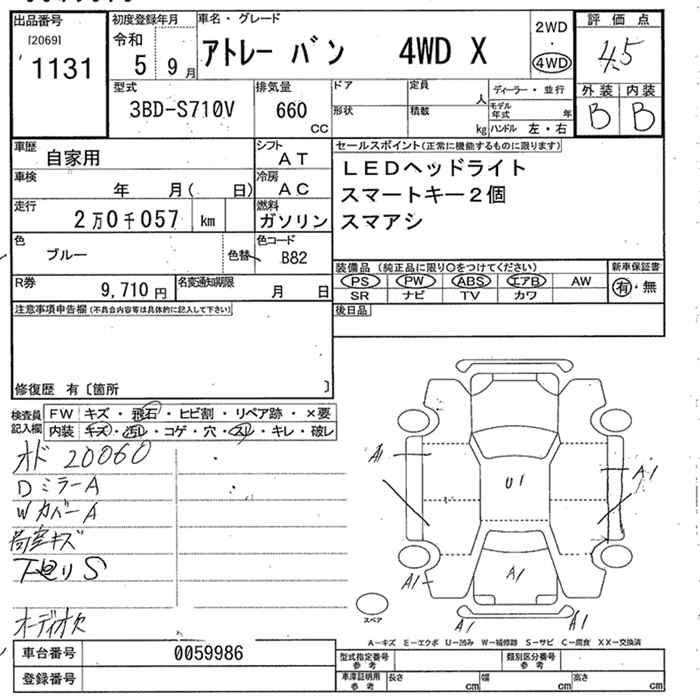 出品番号
[2069]
1131
初度登録年月
令和
5 9月
車名・グレード
アトレー バン 4WD X
2WD
4WD
評価点
4.5
外装 内装
B B
型式
3BD-S710V
排気量
660
CC
ドア
定員
人
形状
積載
kg
ディーラー・並行
モデル年式 年
ハンドル 左・右
車歴
自家用
シフト
AT
車検
年 月( 日)
冷房
AC
走行
2万0千057 km
燃料
ガソリン
色
ブルー
色替
色コード
B82
R券
9,710円
名変通知期限
月 日
セールスポイント(正常に機能するものに限ります)
LEDヘッドライト
スマートキー2個
スマアシ
装備品 (純正品に限り○をつけてください)
新車保証書
PS PW ABS エアB AW
有・無
SR ナビ TV カワ
後日品
注意事項申告欄(不具合内容等は具体的に記入して下さい)
修復歴 有〔箇所 〕
検査員記入欄
FW キズ・飛石・ヒビ割・リペア跡・×要
内装 キズ・汚れ・コゲ・穴・スレ・キレ・破レ
オド 20060
DミラーA
WカバーA
荷室キズ
下廻りS
オーディオ欠
A1
A1
U1
A1
A1
A1
A1
スペア
A−キズ E−エクボ U−凹み W−補修跡 S−サビ C−腐食 XX−交換済
車台番号
0059986
登録番号
型式指定番号 参考
類別区分番号 参考
車庫証明用 参考
長さ cm
幅 cm
高さ cm